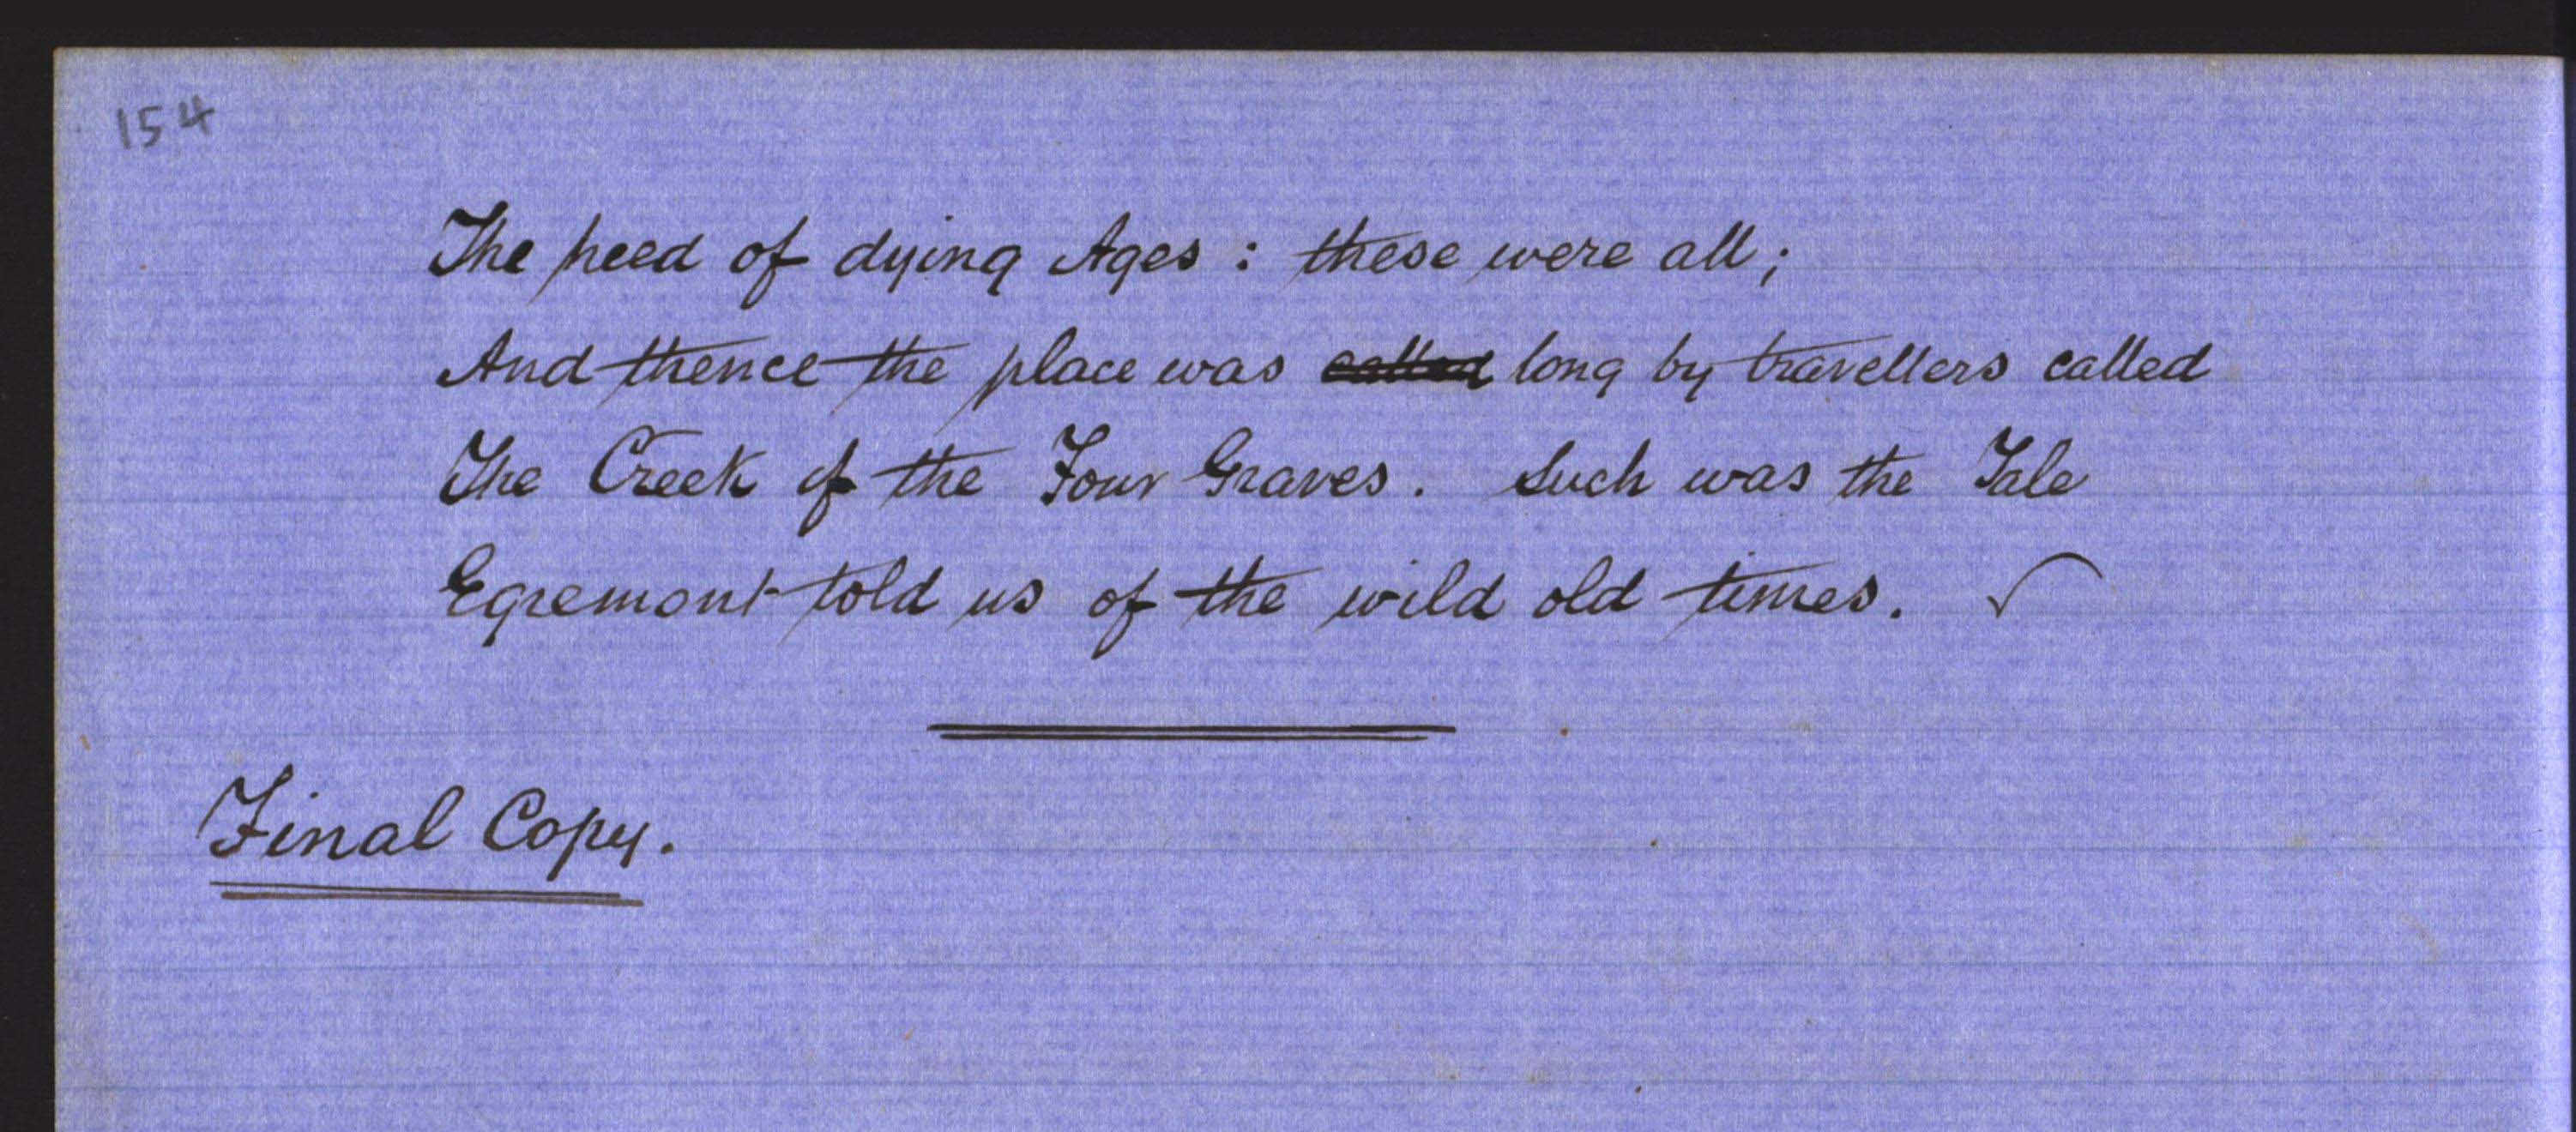 154
The heed of dying Ages : these were all ;
And thence the place was called long by travellers called
The Creek of the Four Graves. Such was the Tale
Egremont told us of the wild old times. ✓
Final Copy.